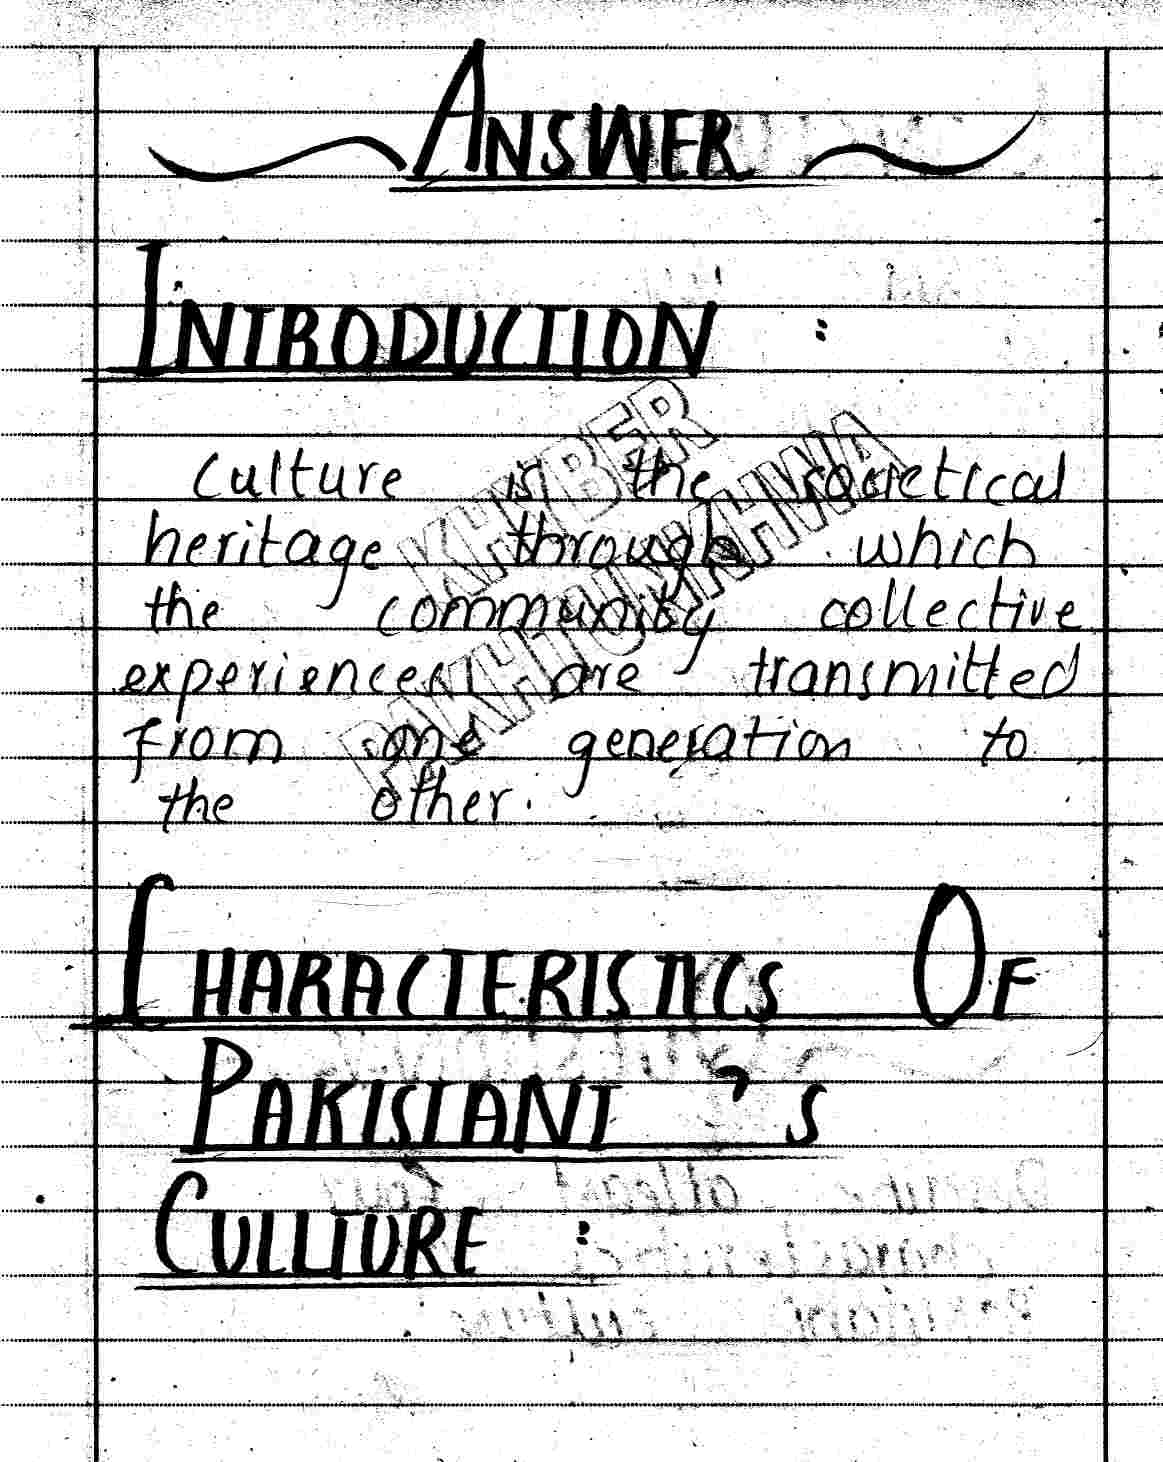 ANSWER
INTRODUCTION :
Culture is the societical
heritage through which
the community collective
experiences are transmitted
from one generation to
the other.
CHARACTERISTICS OF
PAKISTANI 's
CULTURE :
KHYBER
PAKHTUNKHWA